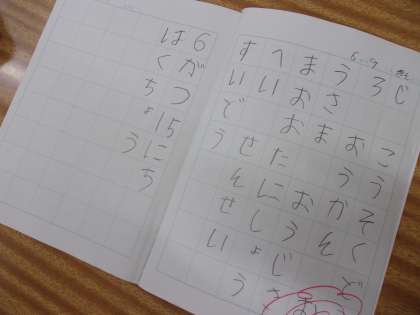 6.9
じ こうそくど
ろ おうかそ
うさま おうじさ
まおおたにしょ
へい せそせいう
すいどう
6がつ15にち
はくちょう